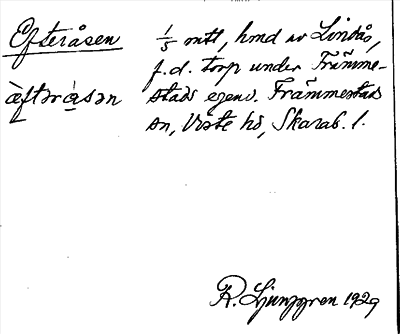 Efteråsen 1/5 mtl, hmd av Lindås,
f.d. torp under Främme-
àftərå̀sən stads egend. Främmestads
sn, Viste hd, Skarab. l.
R. Ljunggren 1929